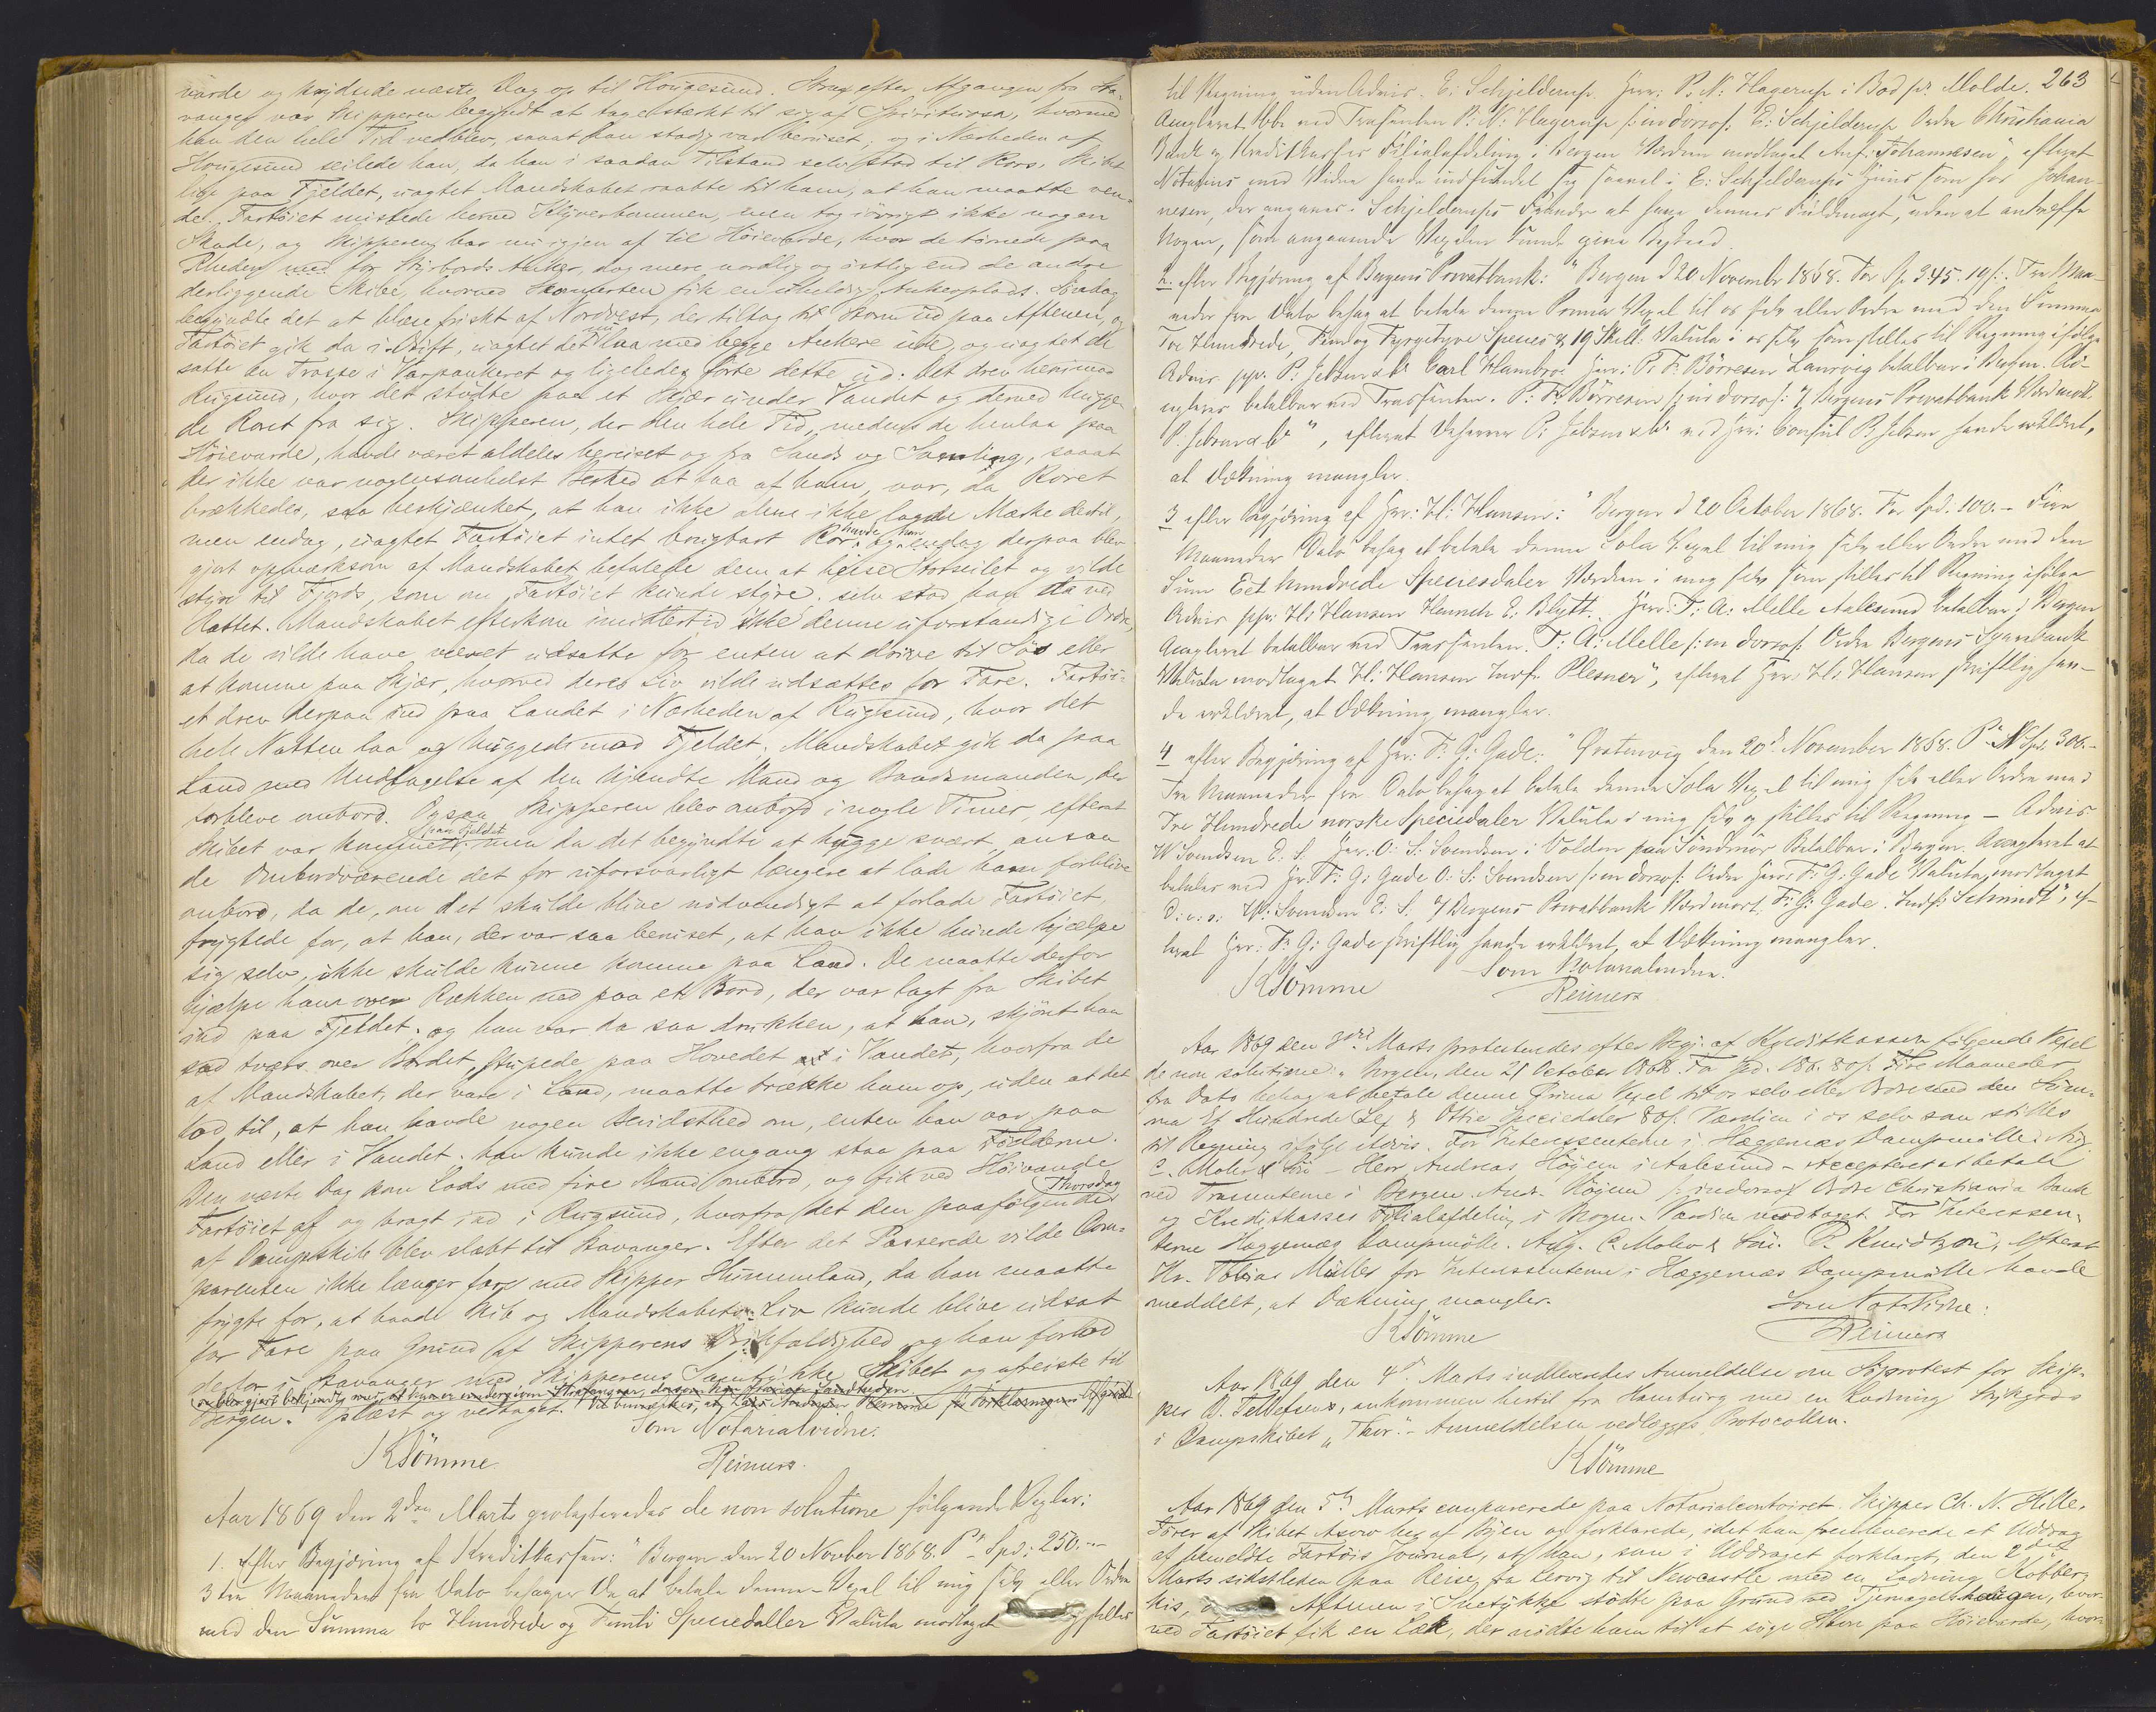 varde og krydsede næste Dag op til Hougesund. Strax efter Afgangen fra Sta-
vanger var Skipperen begyndt at tage stærkt til sig af Spirituosa, hvormed
han den hele Tid vedblev, saaat han stadig var beruset, og i Nærheden af
Hougesund seilede han, da han i saadan Tilstand selv stod til Rors, Skibet
lige paa Fjeldet, uagtet Mandskabet raabte til ham, at han maatte ven-
de. Fartöiet mistede herved Klyverbommen, men tog iövrigt ikke nogen
Skade, og Skipperen bar nu igjen af til Höievarde, hvor de törnede paa
Rheden med for Styrbords Anker, dog mere nordlig og östlig end de andre
derliggende Skibe, hvorved Skonnerten fik en uheldig Ankerplads. Söndag
begyndte det at blæse friskt af Nordvest, der tiltog til Storm ud paa Aftenen, og
Fartöiet gik da i Drift, uagtet det nu laa med begge Ankere ude, og uagtet de
satte en Trosse i Varpankeret og ligeledes förte dette ud. Det drev henimod
Rugsund, hvor det stödte paa et Skjær under Vandet og derved hugge-
de Roret fra sig. Skipperen, der den hele Tid, medens de henlaa paa
Höievarde, havde været aldeles beruset og fra Sands og Samling, saaat
der ikke var nogensomhelst Besked at faa af ham, var, da Roret
brækkedes, saa beskjænket, at han ikke alene ikke lagde Mærke dertil,
men endog, uagtet Fartöiet intet brugbart Ror havde, og han endog derpaa blev
gjort opmærksom af Mandskabet befalede dem at heise Storseilet og vilde
styre til Fjords, som om Fartöiet kunde styre. selv stod han da ved
Rattet. Mandskabet efterkom imidlertid ikke denne uforstandige Ordre,
da de vilde have været udsatte for enten at drive til Söes eller
at komme paa Skjær, hvorved deres Liv vilde udsættes for Fare. Fartöi-
et drev derpaa ind paa Landet i Nærheden af Rugsund, hvor det
hele Natten laa og huggede mod Fjeldet. Mandskabet gik da paa
Land med Undtagelse af den hjendte Mand og Baadsmanden, der
forbleve ombord. Ogsaa Skipperen blev ombord i nogle Timer, efterat
Skibet var kommet paa Fjeldet men da det begyndte at hugge svært, ansaa
de Ombordværende det for uforsvarligt længere at lade ham forblive
ombord, da de, om det skulde blive nödvendigt at forlade Fartöiet,
frygtede for, at han, der var saa beruset, at han ikke kunde hjælpe
sig selv, ikke skulde kunne komme paa Land. De maatte derfor
hjælpe ham over Rækken ned paa et Bord, der var lagt fra Skibet
ind paa Fjeldet. og han var da saa drukken, at han, skjönt han
sad tværs over Bordet, stupede paa Hovedet ud i Vandet, hvorfra de
af Mandskabet, der vare i Land, maatte trække ham op, uden at det
lod til, at han havde nogen Bevidsthed om, enten han var paa
Land eller i Vandet. han kunde ikke engang staa paa Födderne.
Den næste Dag kom Lods med fire Mand ombord, og fik ved Höivande
Fartöiet af og bragt ind i Rugsund, hvorfra det den paafölgende Thorsdag
af Dampskib blev slæbt til Stavanger. Efter det Passerede vilde Com-
parenten ikke længer fare med Skipper Hummeland, da han maatte
frygte for, at baade Skib og Mandskabets Liv kunde blive udsat
for Fare paa Grund af Skipperens Drikfældighed og han forlod
derfor i Stavanger med Skipperens Samtykke Skibet og afreiste til
Bergen. Oplæst og vedtaget.
Som Notarialvidne.
KSömme Reimers.
Aar 1869 den 2den Marts protesteredes de non solutione fölgende Vexler:
1. Efter Begjæring af Kreditkassen: "Bergen den 20 Novber 1868. Pr Spd: 250.--
3 tre Maaneder fra Dato behager De at betale denne Vexel til mig selv eller Ordre
med den Summa to Hundrede og Femti Speciedaller Valuta modtaget og stilles
263
til Regning uden Advis. E: Schjelderup. Herr: P: N: Hagerup i Bod pr. Molde.
Accepteret Bbr ved Trasenten P: N: Hagerup /: in dorso /: E: Schjelderup Ordre Christiania
Bank og Kreditkasses Filialafdeling i Bergen Værdien modtaget Anf: Johannesen", efterat
Notarius med Vidne havde indfundet sig saavel i E: Schjelderups Huus som hos Johan-
nesen, der angaves i Schjelderups Fravær at have dennes Fuldmagt, uden at antræffe
Nogen, som angaaende Vexelen kunde give Besked.
2. efter Begjæring af Bergens Privatbank: "Bergen d 20 November 1868. For Sp. 345. 19 s. Tre Maa-
neder fra Dato behag at betale denne Prima Vexel til os selv eller Ordre med den Summa
Tre Hundrede, Fem og Fyrgetyve Species & 19 Skill: Valuta i os selv som stilles til Regning ifölge
Advis ppr. P: Jebsen & Co Carl Hambro. Herr: P: T: Börresen Laurvig betalbar i Bergen. Ac-
cepteres betalbar ved Trassenten. P: T: Börresen /: in dorso /: Bergens Privatbank Værd modt.
P. Jebsen & Co", efterat Veherrer P: Jebsen & Co ved Hr: Consul P: Jebsen havde erklæret,
at Dækning mangler.
3 efter Begjæring af Hr: H: Hansen: "Bergen d 20 October 1868. For Spd: 100.- Fire
Maaneder Dato behag at betale denne Sola Vexel til mig selv eller Ordre med den
Sum Eet hundrede Speciesdaler Værdien i mig selv som stilles til Regning ifölge
Advis ppr: H: Hansen Henrch E. Blytt. Herr: T: A: Melle Aalesund betalbar i Bergen
Accepteret betalbar ved Trassenten. T: A: Melle /: in dorso /: Ordre Bergens Sparebank
Valuta modtaget H: Hansen Indf. Plesner", efterat Hr: H: Hansen skriftlig hav-
de erklæret, at Dækning mangler.
4 efter Begjæring af Hr: F: G: Gade: " den 20de November 1868. Pr N Spd. 300.-
Tre Maaneder fra Dato behag at betale denne Sola Vexel til mig selv eller Ordre med
Tre Hundrede norske Speciedaler Valuta i mig selv og stilles til Regning - Advis
W Svendsen E: S: Herr: O: S: Svendsen i Volden paa Söndmör Betalbar i Bergen. Accepteret at
betales ved Hr. F: G: Gade O: S: Svendsen /: in dorso /: Ordre Herr F: G: Gade Valuta modtaget
D: u: s: W: Svendsen E: S. Bergens Privatbank Værd modt. F: G: Gade. Indf: Schmidt", ef-
terat Hr: F: G: Gade skriftlig havde erklæret, at Dækning mangler.
Som Notarialvidne.
KSömme Reimers
Aar 1869 den 3die Marts protesteredes efter Begj. af Kreditkassen fölgende Vexel
de non solutione: "Bergen, den 21 October 1868. For Spd. 186. 80 s. Fire Maaneder
fra Dato behag at betale denne Prima Vexel til os selv eller Ordre med den Sum-
ma Et Hundrede Sex & Ottie Speciedaler 80 s. Værdien i os selv som stilles
til Regning ifölge Advis. For Interessenterne i Hæggernæs Dampmölle. Aug.
C. Mohr & Sön - Herr Andreas Höjem i Aalesund - Accepteret at betale
ved Trassenterne i Bergen. Andr. Höjem /: in dorso /: Ordre Christiania Bank
og Kreditkasses Filialafdeling i Bergen. Værdien modtaget For Interessen-
terne Hæggernæs Dampmölle. Aug. C. Mohr & Sön. P. Knudtzon", efterat
Hr. Tobias Müller for Interessenterne i Hæggernæs Dampmölle havde
meddelt, at Dækning mangler.
Som Not: Vidne:
KSömme Reimers
Aar 1869 den 4de Marts indleveredes Anmeldelse om Söprotest for Skip-
per D. Tellefsen, ankommen hertil fra Hamburg med en Ladning Stykgods
i Dampskibet "Thor". - Anmeldelsen vedlægges Protocollen.
KSömme
Aar 1869 den 5te Marts comparerede paa Notarialcontoiret Skipper Ch. N. Hille,
Förer af Skibet af Byen og forklarede, idet han fremleverede et Uddrag
af bemeldte Fartöis Journal, at han, som i Uddraget forklaret, den 2den
Marts sidstleden paa Reise fra Lervig til Newcastle med en Ladning Kobber-
kis, Aftenen i Snetykke stödte paa Grund ved Tjernagelshougen, hvor-
ved Fartöiet fik en Læk, der nödte ham til at söge Havn paa Höievarde, hvor-